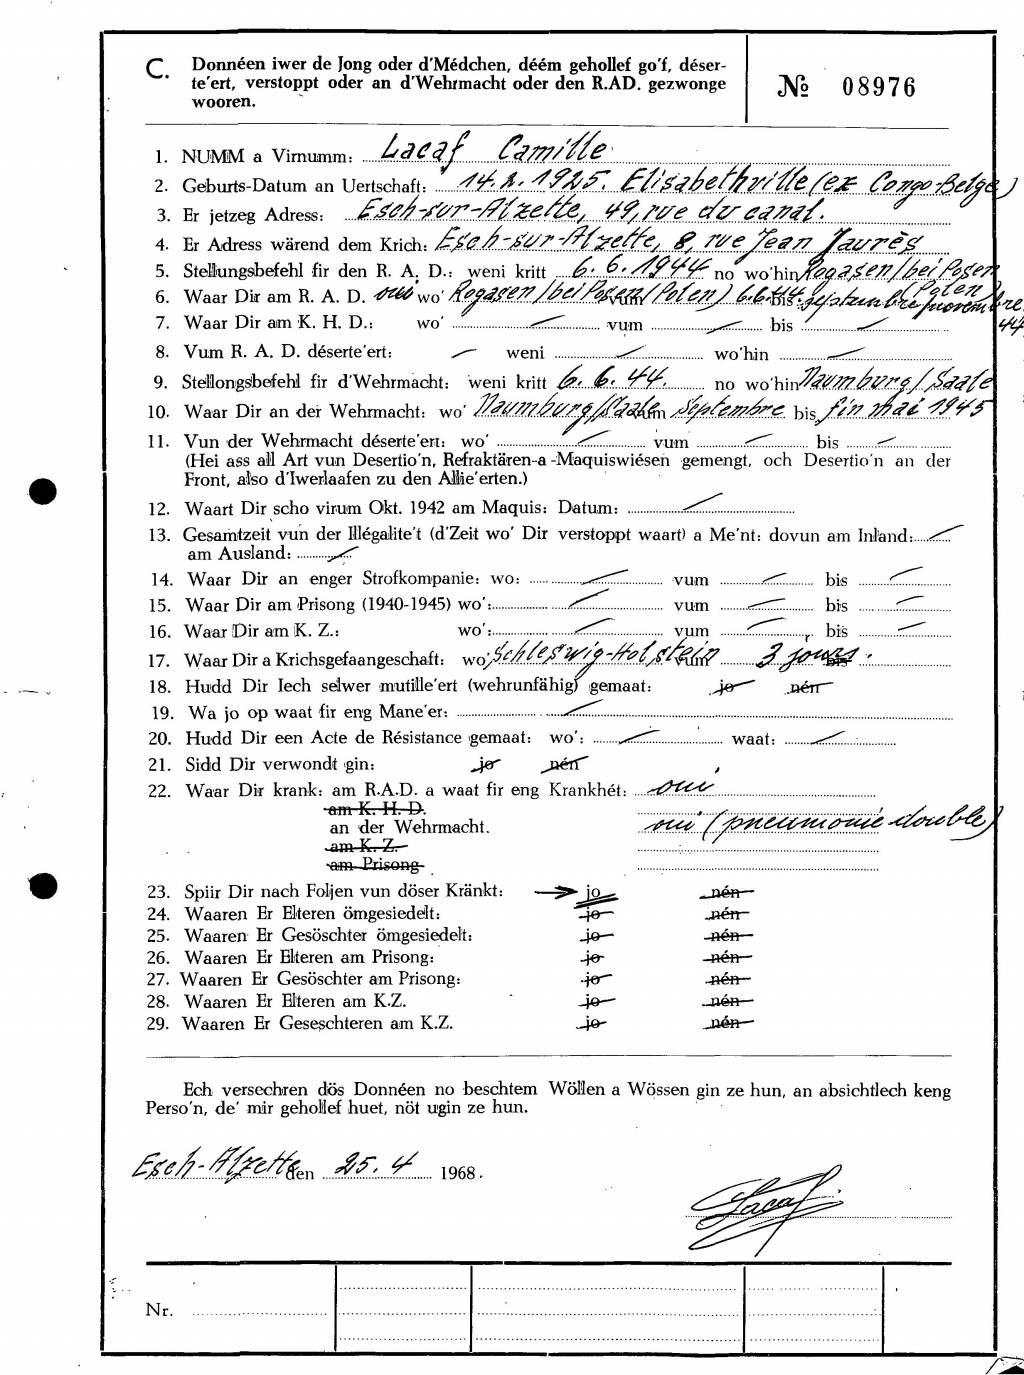 C. Donnéen iwer de Jong oder d'Médchen, déém gehollef go'f, déser-
te'ert, verstoppt oder an d'Wehrmacht oder den R.AD. gezwonge
wooren.
№ 08976
1. NUMM a Virnumm: Lacaf Camille
2. Geburts-Datum an Uertschaft: 14.2.1925. Elisabethville (ex Congo-Belge)
3. Er jetzeg Adress: Esch-sur-Alzette, 49, rue du canal.
4. Er Adress wärend dem Krich: Esch-sur-Alzette, 8, rue Jean Jaurès
5. Stellungsbefehl fir den R. A. D.: weni kritt 6.6.1944 no wo'hin Rogasen/bei Posen
6. Waar Dir am R. A. D. oui wo' Rogasen/bei Posen (Polen) vum 6.6.44 bis septembre/novembre 44
Polen)
7. Waar Dir am K. H. D.: wo' — vum — bis —
8. Vum R. A. D. déserte'ert: — weni — wo'hin —
9. Stellongsbefehl fir d'Wehrmacht: weni kritt 6.6.44. no wo'hin Naumburg/Saale
10. Waar Dir an der Wehrmacht: wo' Naumburg/Saale vum Septembre bis fin mai 1945
11. Vun der Wehrmacht déserte'ert: wo' — vum — bis —
(Hei ass all Art vun Desertio'n, Refraktären-a-Maquiswiésen gemengt, och Desertio'n an der
Front, also d'Iwerlaafen zu den Allie'erten.)
12. Waart Dir scho virum Okt. 1942 am Maquis: Datum: —
13. Gesamtzeit vun der Illégalite't (d'Zeit wo' Dir verstoppt waart) a Me'nt: dovun am Inland: —
am Ausland: —
14. Waar Dir an enger Strofkompanie: wo: — vum — bis —
15. Waar Dir am Prisong (1940-1945) wo': — vum — bis —
16. Waar Dir am K. Z.: wo': — vum — bis —
17. Waar Dir a Krichsgefaangeschaft: wo' Schleswig-Holstein vum 3 jours. bis
18. Hudd Dir Iech selwer mutille'ert (wehrunfähig) gemaat: jo nén
19. Wa jo op waat fir eng Mane'er: —
20. Hudd Dir een Acte de Résistance gemaat: wo': — waat: —
21. Sidd Dir verwondt gin: jo nén
22. Waar Dir krank: am R.A.D. a waat fir eng Krankhét: oui
am K. H. D.
an der Wehrmacht. oui (pneumonie double)
am K. Z.
am Prisong
23. Spiir Dir nach Foljen vun döser Kränkt: → jo nén
24. Waaren Er Elteren ömgesiedelt: jo nén
25. Waaren Er Gesöschter ömgesiedelt: jo nén
26. Waaren Er Elteren am Prisong: jo nén
27. Waaren Er Gesöschter am Prisong: jo nén
28. Waaren Er Elteren am K.Z. jo nén
29. Waaren Er Geseschteren am K.Z. jo nén
Ech versechren dös Donnéen no beschtem Wöllen a Wössen gin ze hun, an absichtlech keng
Perso'n, de' mir gehollef huet, nöt ugin ze hun.
Esch-Alzette den 25.4 1968.
Lacaf
Nr.